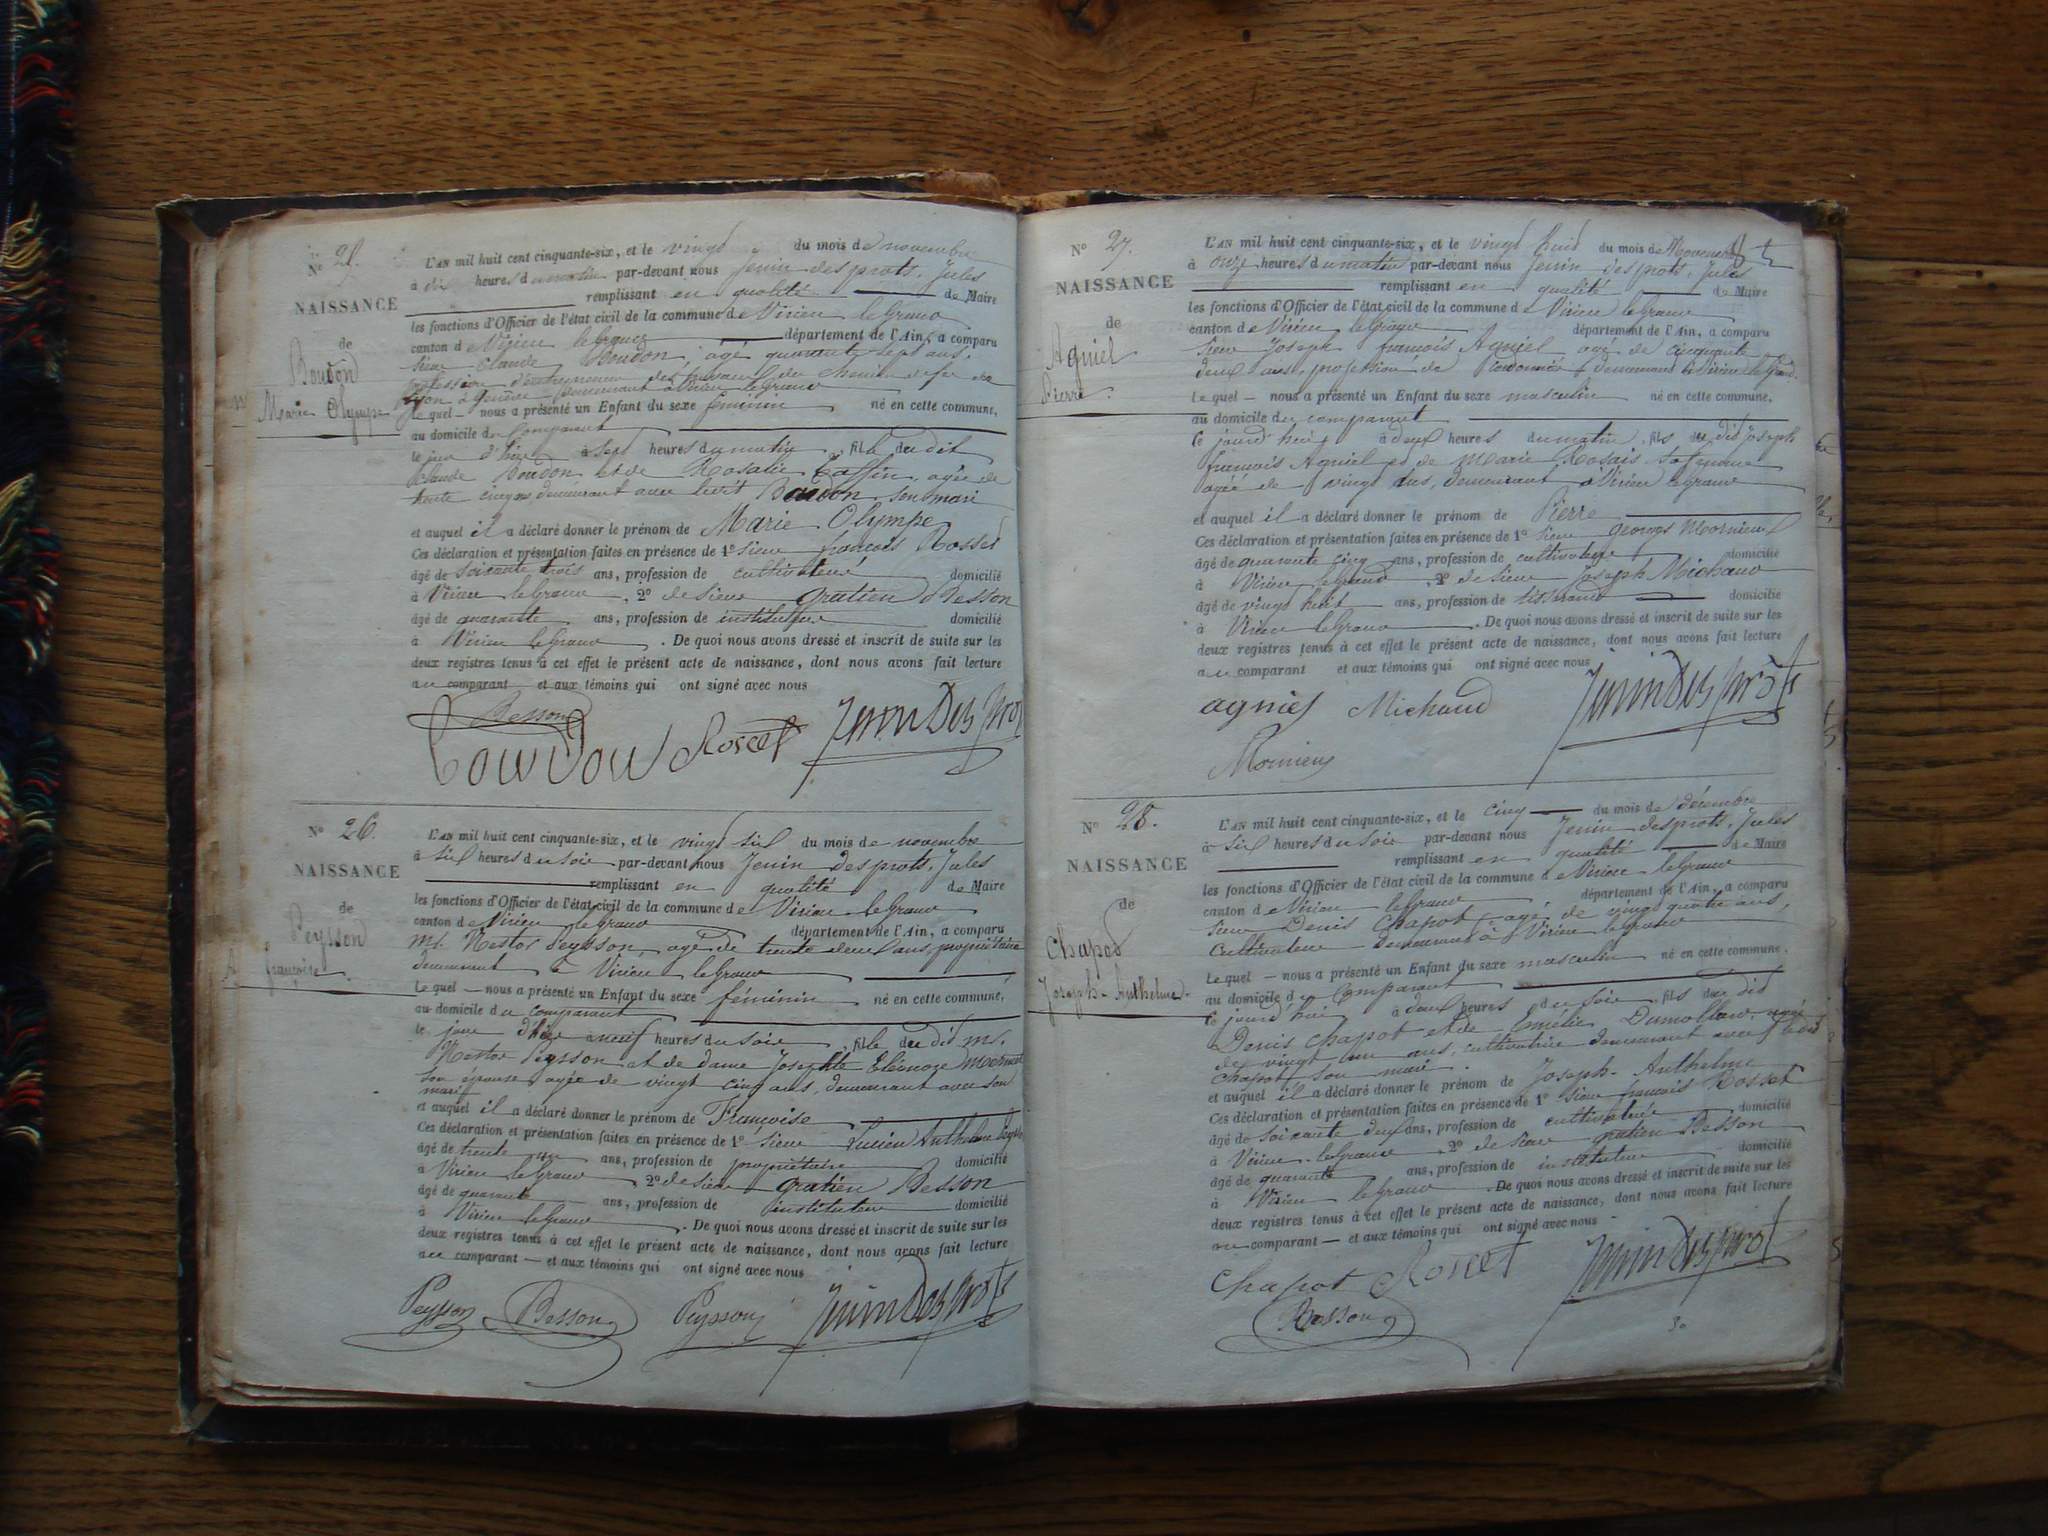 N° 25.
NAISSANCE
de
Boudon
Marie Olympe
L'AN mil huit cent cinquante-six, et le vingt du mois de novembre
à dix heures du matin par-devant nous Jenin desprots, Jules
remplissant en qualité de Maire
les fonctions d'Officier de l'état civil de la commune de Virieu le grand
canton de Virieu le grand département de l'Ain, a comparu
sieur Claude Boudon, âgé quarante sept ans,
profession d'entrepreneur des travaux du chemin de fer de
Lyon à Genève demeurant à Virieu le grand
Lequel — nous a présenté un Enfant du sexe féminin né en cette commune,
au domicile du comparant
le jour d'hier à sept heures du matin, fille du dit
Claude Boudon et de Rosalie âgée de
trente cinq ans demeurant avec ledit Boudon son mari
et auquel il a déclaré donner le prénom de Marie Olympe
Ces déclaration et présentation faites en présence de 1° sieur françois Rosset
âgé de soixante trois ans, profession de cultivateur domicilié
à Virieu le grand, 2° de sieur gratien Besson
âgé de quarante ans, profession de instituteur domicilié
à Virieu le grand. De quoi nous avons dressé et inscrit de suite sur les
deux registres tenus à cet effet le présent acte de naissance, dont nous avons fait lecture
au comparant et aux témoins qui ont signé avec nous
Besson
Boudou Rosset Jenin Des prots
N° 26.
NAISSANCE
de
Peysson
françoise.
L'AN mil huit cent cinquante-six, et le vingt six du mois de novembre
à six heures du soir par-devant nous Jenin desprots, Jules
remplissant en qualité de Maire
les fonctions d'Officier de l'état civil de la commune de Virieu le grand
canton de Virieu le grand département de l'Ain, a comparu
mr. Nestor Peysson, âgé de trente deux ans, propriétaire
demeurant à Virieu le grand
Lequel — nous a présenté un Enfant du sexe féminin né en cette commune,
au domicile du comparant
le jour d'hier à neuf heures du soir, fille du dit mr.
Nestor Peysson et de dame Josephte Eléonore
son épouse âgée de vingt cinq ans, demeurant avec son
mari
et auquel il a déclaré donner le prénom de Françoise
Ces déclaration et présentation faites en présence de 1° sieur Lucien Anthelme Peysson
âgé de trente un ans, profession de propriétaire domicilié
à Virieu le grand 2° de sieur gratien Besson
âgé de quarante ans, profession de instituteur domicilié
à Virieu le grand. De quoi nous avons dressé et inscrit de suite sur les
deux registres tenus à cet effet le présent acte de naissance, dont nous avons fait lecture
au comparant — et aux témoins qui ont signé avec nous
Peysson Besson Peysson Jenin Des prots
N° 27.
NAISSANCE
de
Agniel
Pierre.
L'AN mil huit cent cinquante-six, et le vingt huit du mois de Novembre
à onze heures du matin par-devant nous Jenin desprots, Jules
remplissant en qualité de Maire
les fonctions d'Officier de l'état civil de la commune de Virieu le grand
canton de Virieu le grand département de l'Ain, a comparu
sieur Joseph françois Agniel âgé de cinquante
deux ans, profession de Cordonnier demeurant à Virieu le grand.
Lequel — nous a présenté un Enfant du sexe masculin né en cette commune,
au domicile du comparant
ce jourd'hui à deux heures du matin, fils du dit Joseph
françois Agniel et de Marie
âgée de vingt ans, demeurant à Virieu le grand
et auquel il a déclaré donner le prénom de Pierre
Ces déclaration et présentation faites en présence de 1° sieur georges Mornieux
âgé de quarante cinq ans, profession de cultivateur domicilié
à Virieu le grand, 2° de sieur Joseph Michaud
âgé de vingt huit ans, profession de tisserand domicilié
à Virieu le grand. De quoi nous avons dressé et inscrit de suite sur les
deux registres tenus à cet effet le présent acte de naissance, dont nous avons fait lecture
au comparant et aux témoins qui ont signé avec nous
agniel Michaud Jenin Des prots
Mornieux
N° 28.
NAISSANCE
de
Chapot
Joseph-Anthelme.
L'AN mil huit cent cinquante-six, et le cinq du mois de décembre
à six heures du soir par-devant nous Jenin desprots, Jules
remplissant en qualité de Maire
les fonctions d'Officier de l'état civil de la commune de Virieu le grand
canton de Virieu le grand département de l'Ain, a comparu
sieur Denis Chapot âgé de vingt quatre ans,
cultivateur demeurant à Virieu le grand
Lequel — nous a présenté un Enfant du sexe masculin né en cette commune.
au domicile du comparant
ce jourd'hui à deux heures du soir, fils du dit
Denis Chapot et de Emélie Dumollard, âgée
de vingt un ans, cultivatrice demeurant avec ledit
Chapot son mari.
et auquel il a déclaré donner le prénom de Joseph-Anthelme
Ces déclaration et présentation faites en présence de 1° sieur françois Rosset
âgé de soixante deux ans, profession de cultivateur domicilié
à Virieu le grand 2° de sieur gratien Besson
âgé de quarante ans, profession de instituteur domicilié
à Virieu le grand. De quoi nous avons dressé et inscrit de suite sur les
deux registres tenus à cet effet le présent acte de naissance, dont nous avons fait lecture
au comparant — et aux témoins qui ont signé avec nous
Chapot Rosset Jenin Des prots
Besson